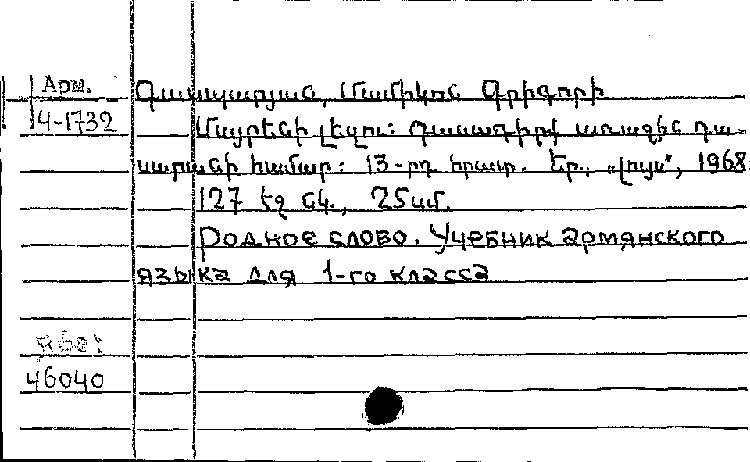 Арм.
4-1732
Գասպարյան, Մամիկոն Գրիգորի
Մայրենի լեզու: Դասագիրք առաջին դա-
սարանի համար: 13-րդ հրատ. Եր., «Լույս», 1968.
127 էջ նկ., 25սմ.
Родное слово. Учебник армянского
языка для 1-го класса
46040